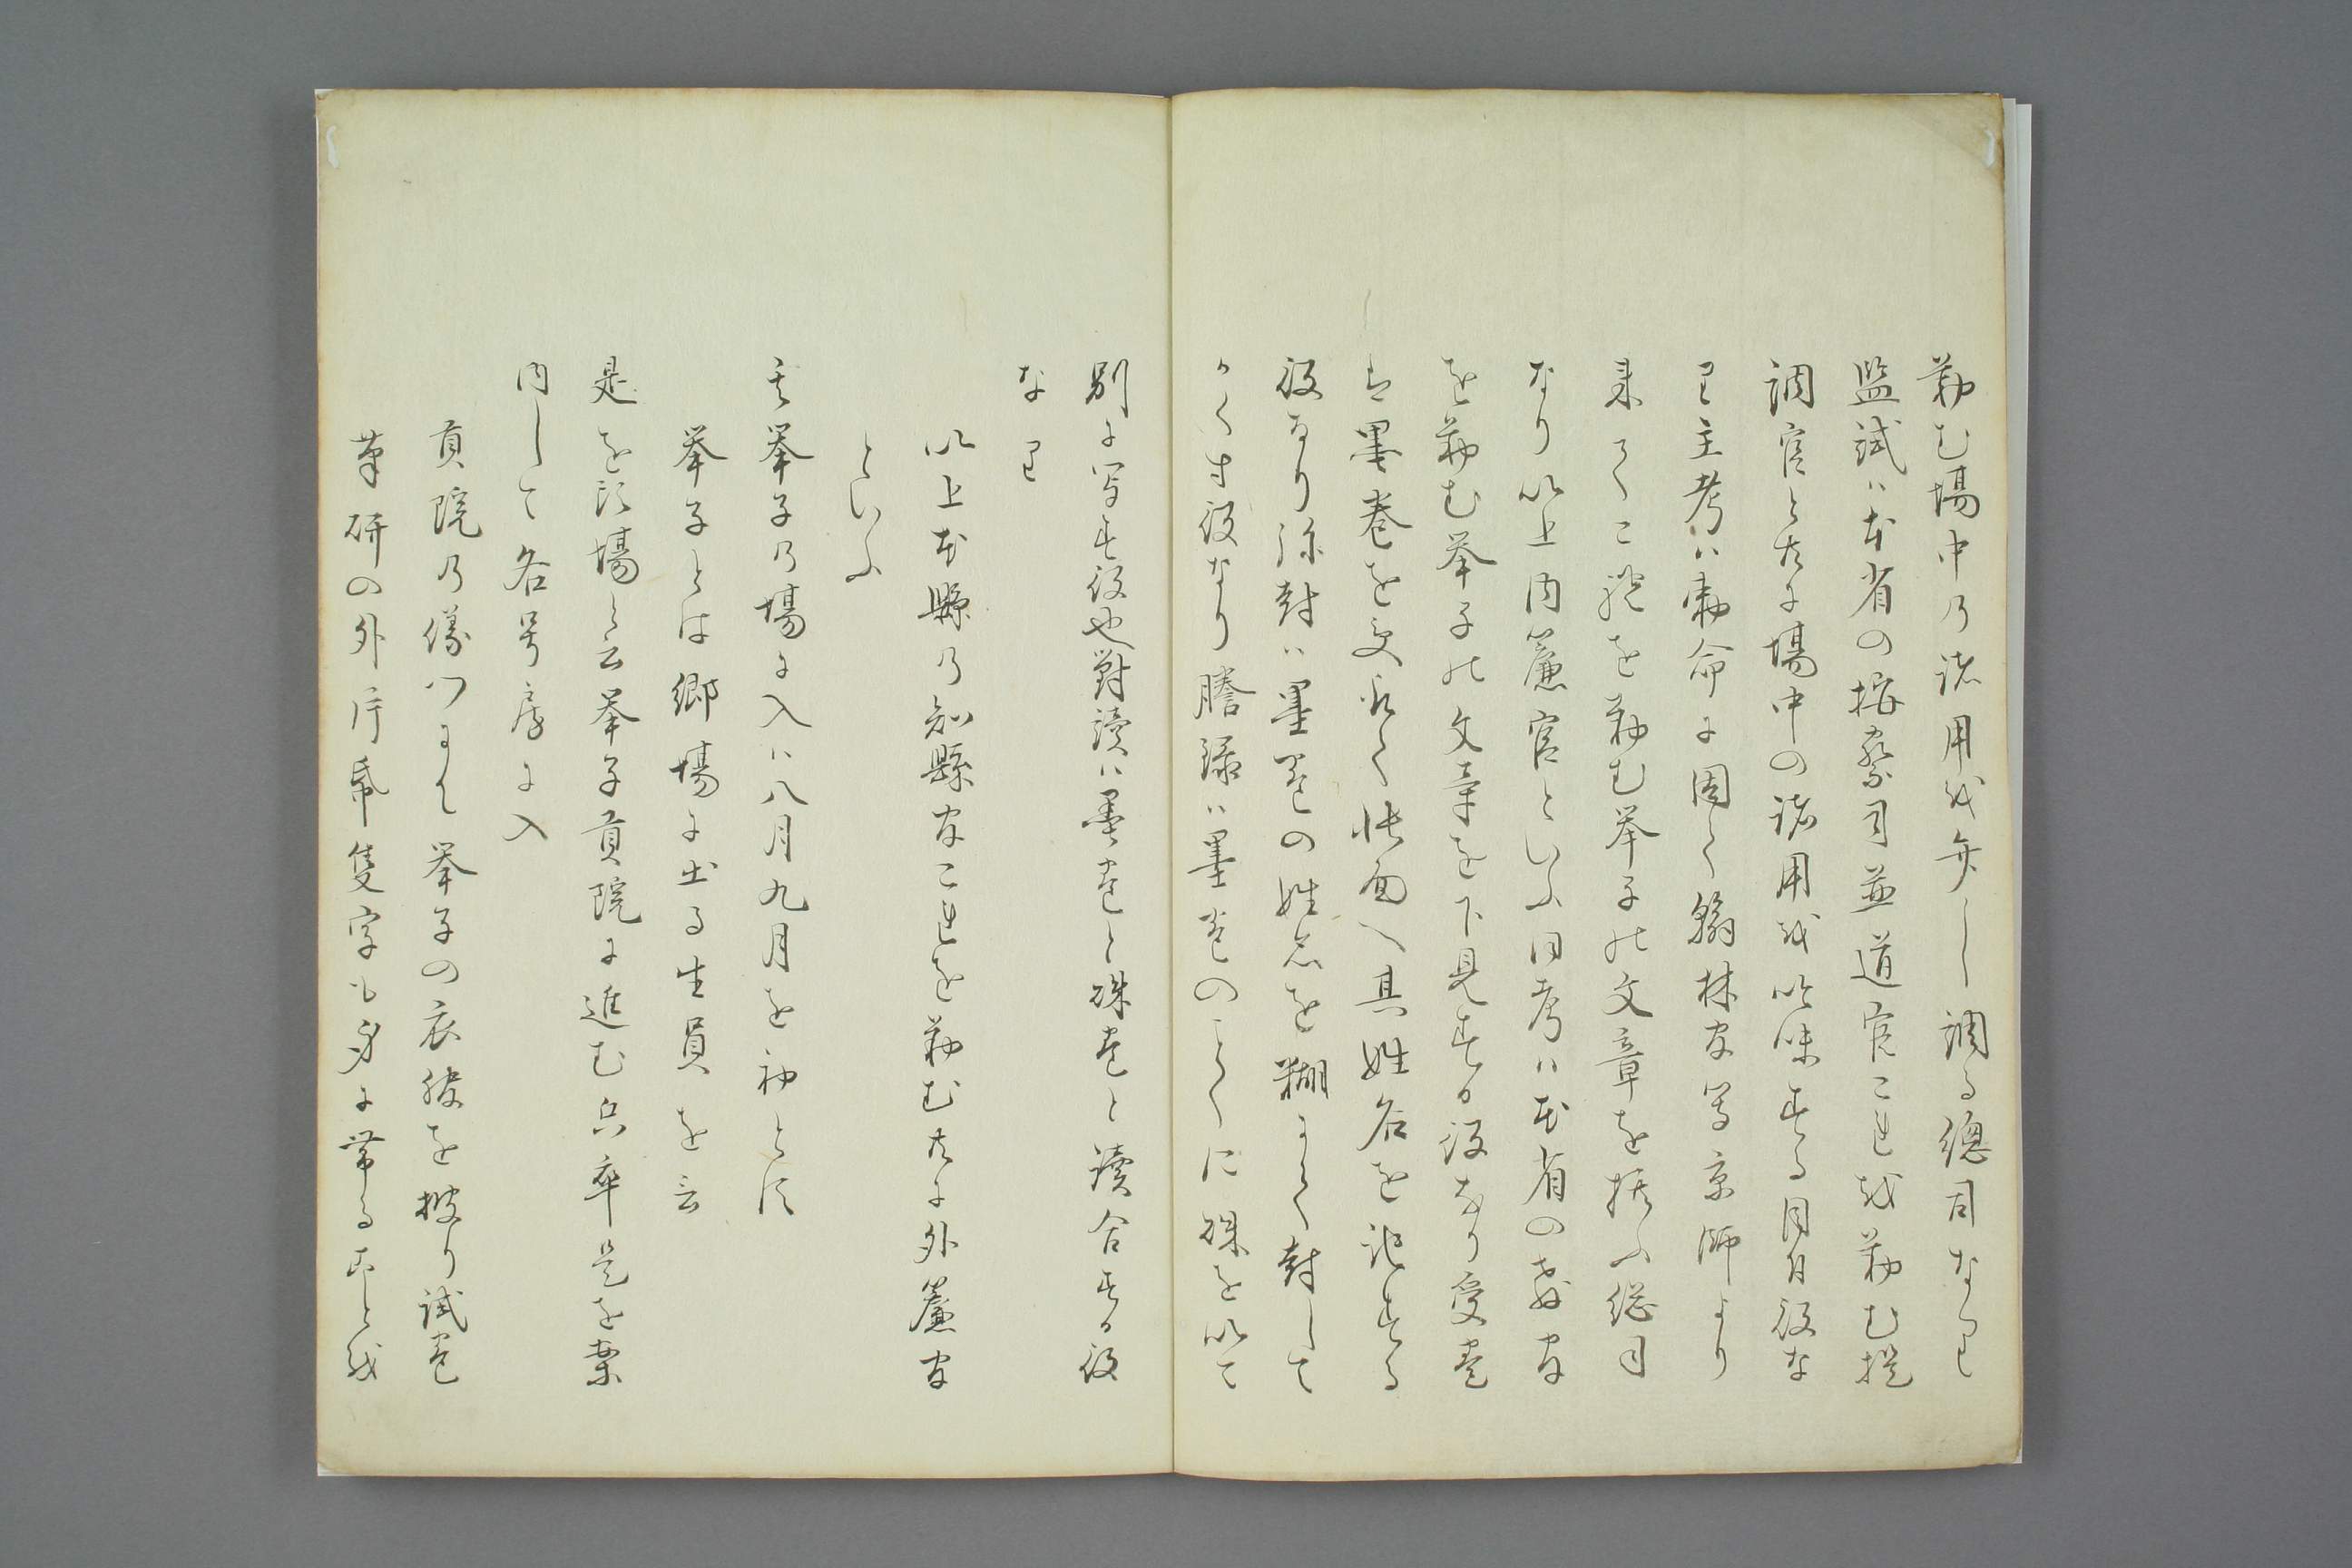 勤む場中の諸用を弁し調る總司なり
監試ハ本省の按察司並道官これを勤む提
調官と共に場中の諸用を吟味する目付役な
り主考ハ勅命に因て翰林官等京師より
来てこれを勤む挙子の文章を撰ふ総司
なり以上内簾官といふ同考ハ本省の教官
を勤む挙子の文章を下見する役なり受巻
は墨巻を受取て帳面へ其姓名を記する
役なり弥封ハ墨巻の姓名を糊にて封して
かくす役なり謄録ハ墨巻のことくに硃を以て
別に写す役也對讀ハ墨巻と硃巻と讀合する役
なり
以上本縣の知縣官これを勤む共に外簾官
といふ
一其挙子の場に入ハ八月九月を初とす
挙子とは郷場に出る生員を云
是を頭場と云挙子貢院に進む兵卒是を案
内して各号房に入
貢院の儀門にて挙子の衣服を披り試巻
筆研の外片帋隻字も身に帯ることを